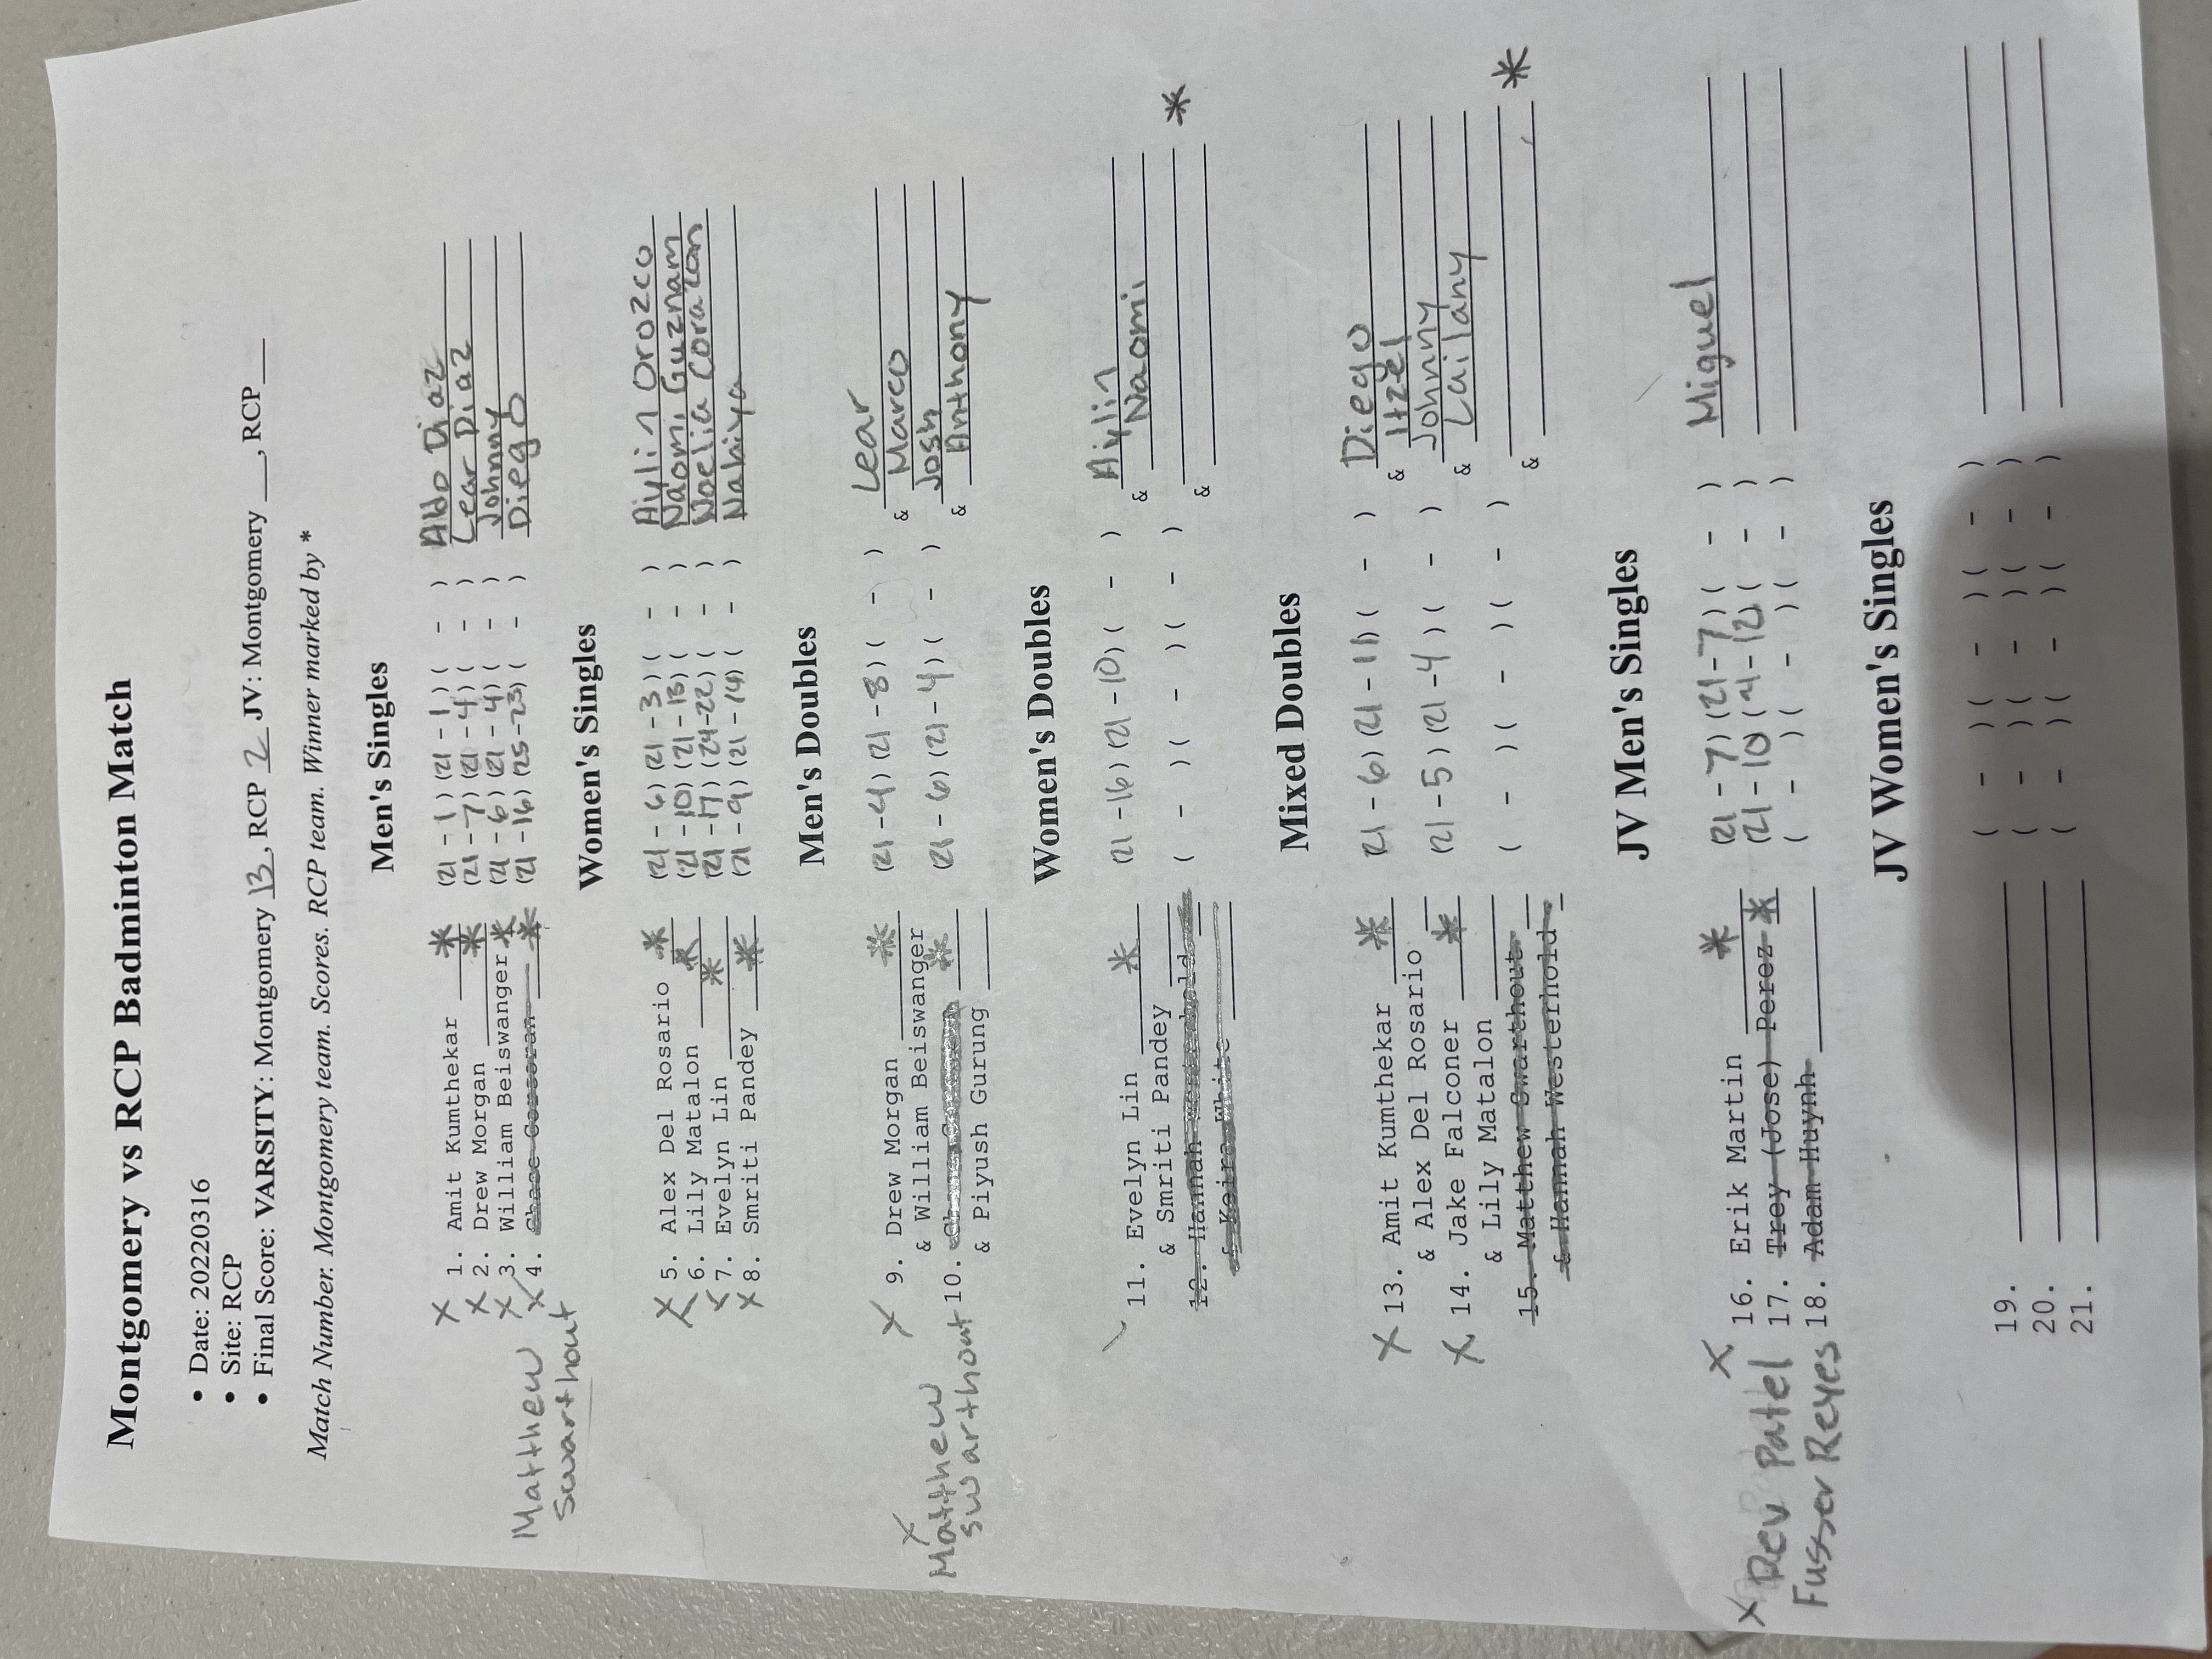 Montgomery vs RCP Badminton Match
• Date: 20220316
• Site: RCP
• Final Score: VARSITY: Montgomery 13, RCP 2 JV: Montgomery ___, RCP ___
Match Number. Montgomery team. Scores. RCP team. Winner marked by *
Men's Singles
X 1. Amit Kumthekar * (21 - 1) (21 - 1) ( - ) Aldo Diaz
X 2. Drew Morgan * (21 - 7) (21 - 4) ( - ) Lear Diaz
X 3. William Beiswanger * (21 - 6) (21 - 4) ( - ) Johnny
X 4. Chase Corcoran * (21 - 16) (25 - 23) ( - ) Diego
Matthew
Swarthout
Women's Singles
X 5. Alex Del Rosario * (21 - 6) (21 - 3) ( - ) Aiylin Orozco
X 6. Lilly Matalon * (21 - 10) (21 - 13) ( - ) Naomi Guznam
X 7. Evelyn Lin * (21 - 17) (24 - 22) ( - ) Noelia Corazon
X 8. Smriti Pandey * (21 - 9) (21 - 14) ( - ) Nahiya
Men's Doubles
X 9. Drew Morgan * (21 - 4) (21 - 8) ( - ) Lear
& William Beiswanger & Marco
X Matthew 10. * (21 - 6) (21 - 4) ( - ) Josh
Swarthout & Piyush Gurung & Anthony
Women's Doubles
11. Evelyn Lin * (21 - 16) (21 - 10) ( - ) Aiylin
& Smriti Pandey & Naomi
12. Hannah Westerhold ( - ) ( - ) ( - ) *
& Keira White &
Mixed Doubles
X 13. Amit Kumthekar * (21 - 6) (21 - 11) ( - ) Diego
& Alex Del Rosario & Itzel
X 14. Jake Falconer * (21 - 5) (21 - 4) ( - ) Johnny
& Lilly Matalon & Lailany
15. Matthew Swarthout ( - ) ( - ) ( - ) *
& Hannah Westerhold &
JV Men's Singles
X 16. Erik Martin * (21 - 7) (21 - 7) ( - ) Miguel
X Dev Patel 17. Trey (Jose) Perez * (21 - 10) (21 - 12) ( - )
Fusser Reyes 18. Adam Huynh ( - ) ( - ) ( - )
JV Women's Singles
19. ( - ) ( - ) ( - )
20. ( - ) ( - ) ( - )
21. ( - ) ( - ) ( - )